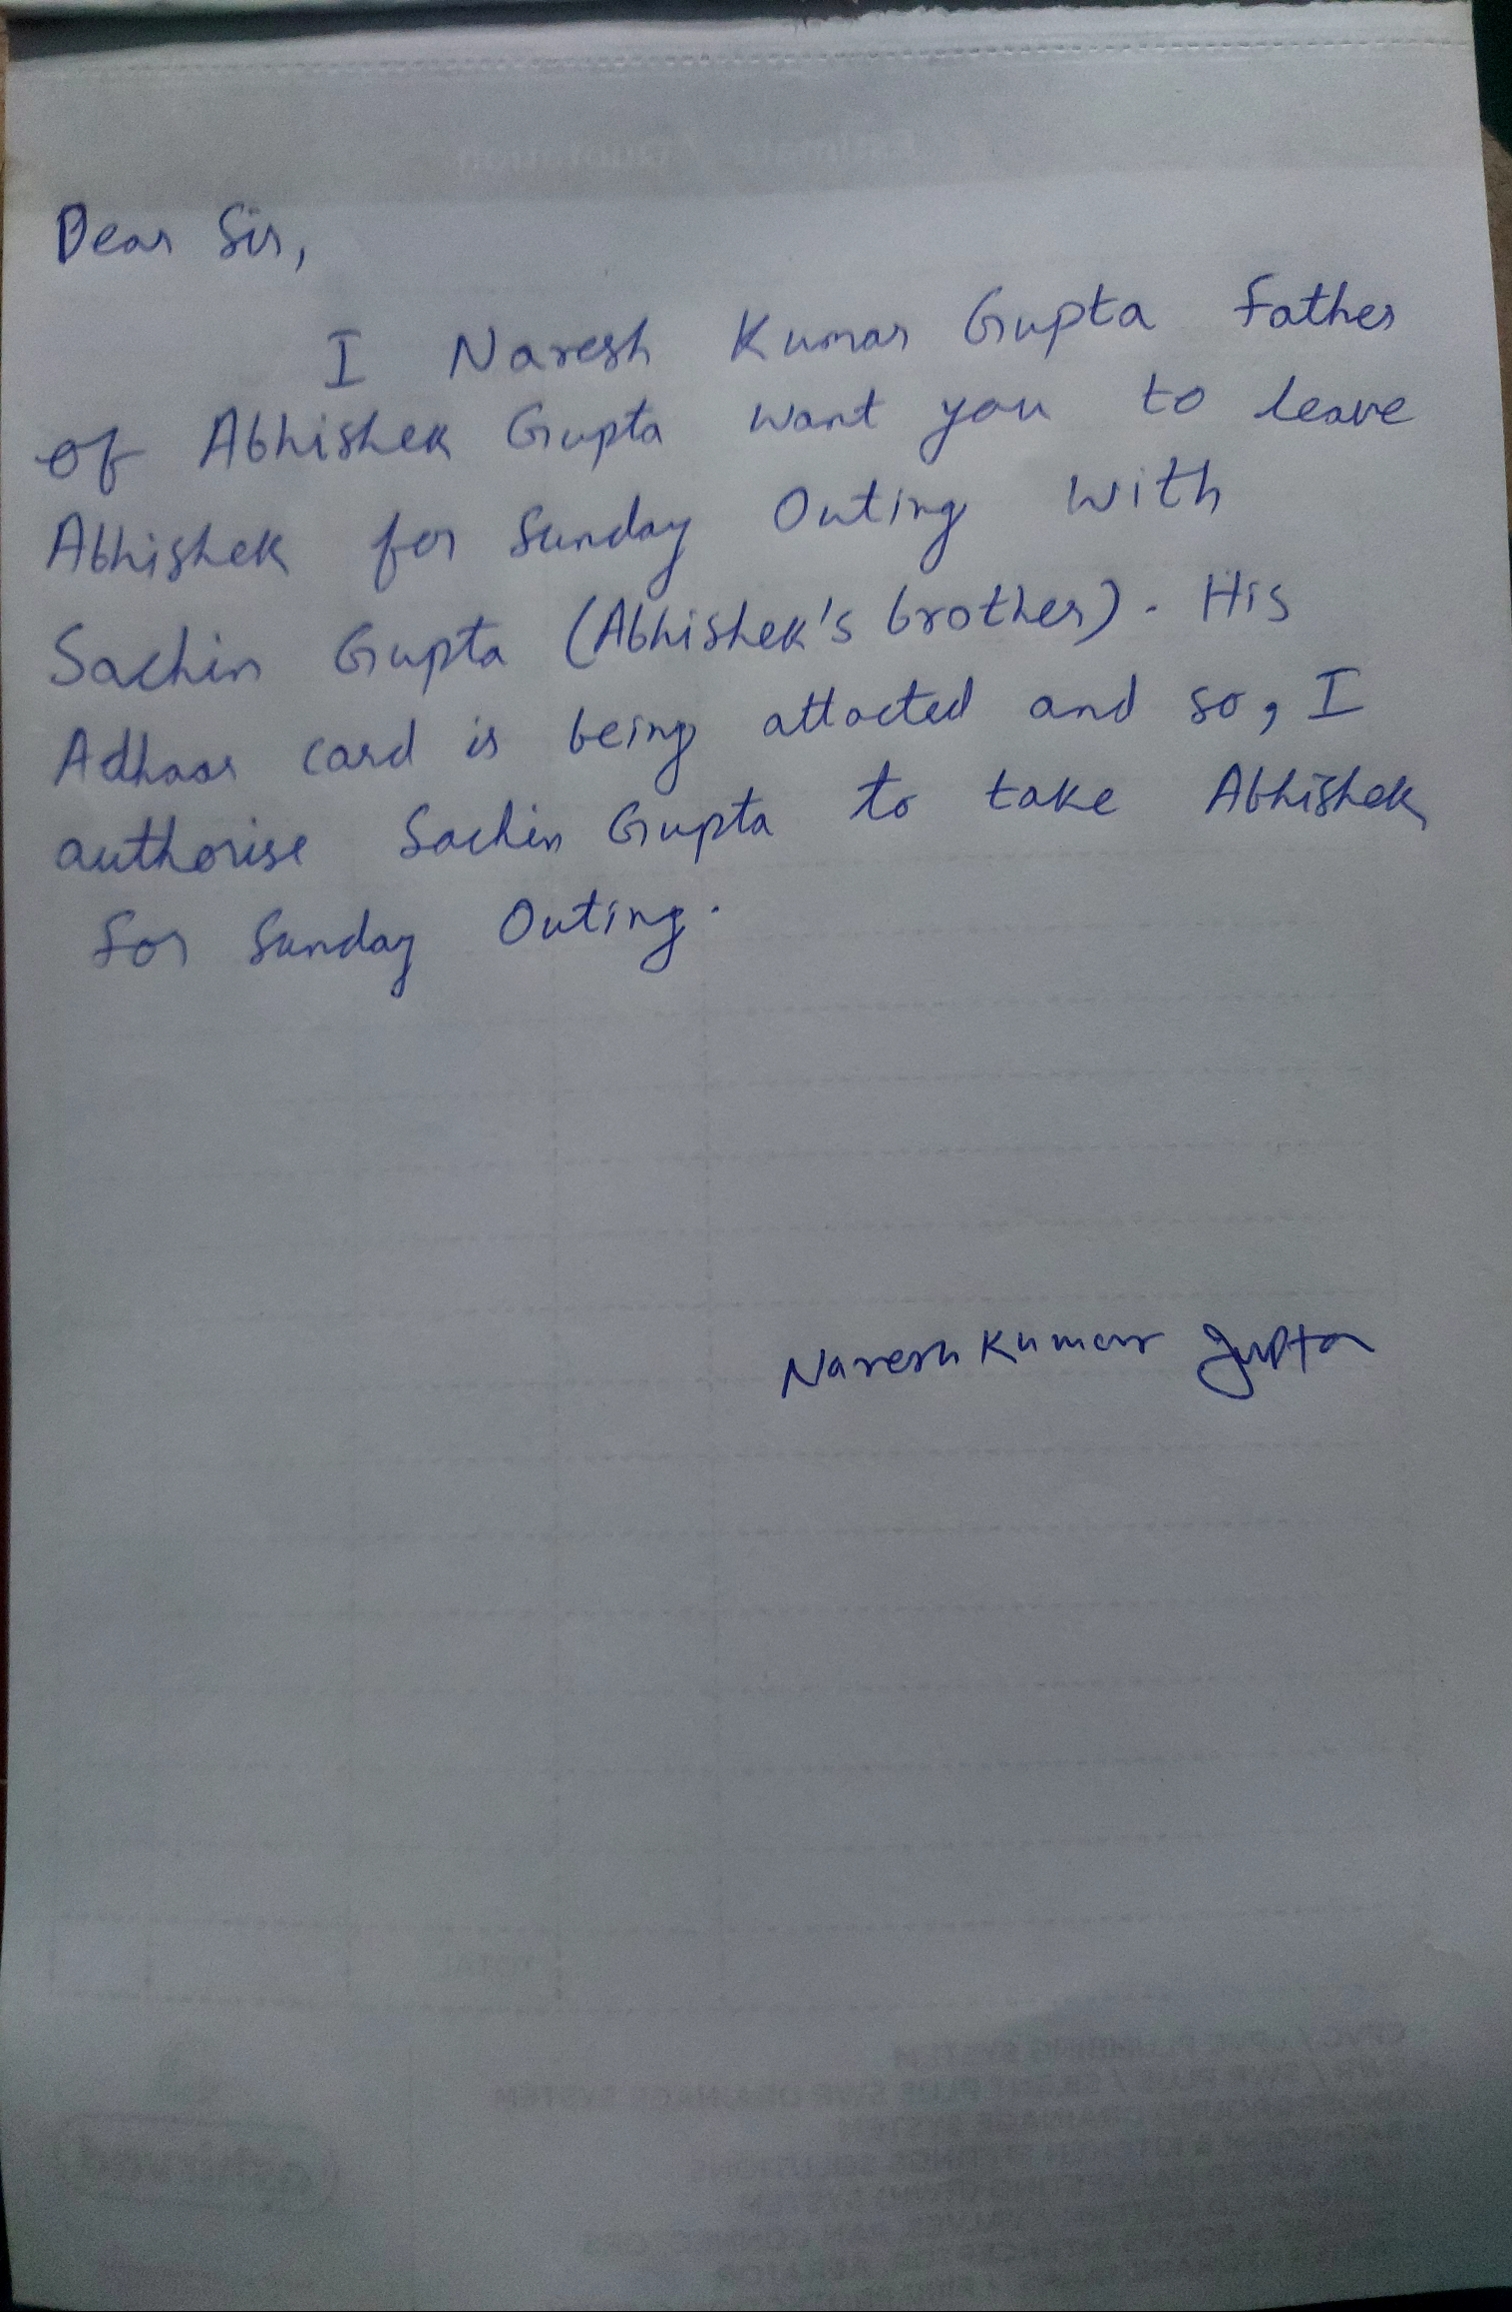 Dear Sir,
I Naresh Kumar Gupta father
of Abhishek Gupta want you to leave
Abhishek for Sunday Outing with
Sachin Gupta (Abhishek's brother). His
Adhaar card is being attacted and so, I
authorise Sachin Gupta to take Abhishek
for Sunday Outing.
Naresh Kumar Gupta
TOTAL
CPVC / UPVC PLUMBING SYSTEM
UNDERGROUND DRAINAGE SYSTEM